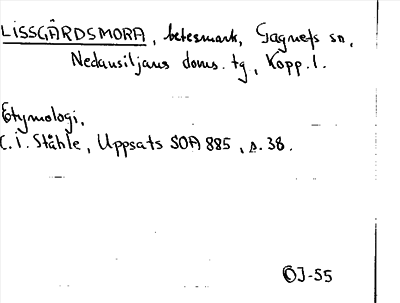 LISSGÅRDSMORA, betesmark, Gagnefs sn,
Nedansiljans doms. tg, Kopp. l.
Etymologi,
C. I. Ståhle, Uppsats SOA 885, s. 38.
OJ-55